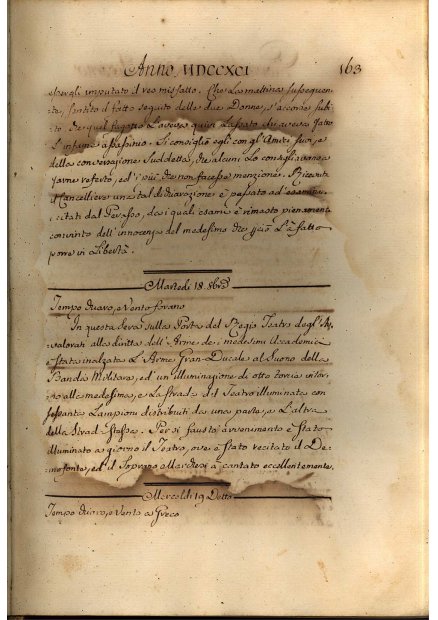 Anno MDCCXCI 163
avergli imputato il reo misfatto. Che La mattina susseguen-
te, sentito il fatto seguito delle due Donne, s'accorse subi-
to che quel fagotto L'aveva quivi Lasciato
L'infame assassino. Si consigliò egli con gl'Amici suoi, e
della conversazione Suddetta, che alcuni Lo consigliarono a
farne referto, ed i più che non facesse menzione. Ricevuta
il Cancelliere una tal dichiarazione è passato ad esaminare
i citati dal Perasso, da i quali esami è rimasto pienamente
convinto dell'innocenza del medesimo che perciò L'à fatto
porre in Libertà.
Martedì 18. 8bre
Tempo Chiaro, e Vento forano
In questa sera sulla Porta del Regio Teatro degl'Av-
valorati alla diritta dell'Arme de i medesimi Academici
è stata inalzata L'Arme Gran-Ducale al Suono della
Banda Militare, ed un'illuminazione di otto torcie intor-
no alle medesime, e La strada ed il Teatro illuminata con
sessanta Lampioni distribuiti da una parte, e L'altra
della Strada Stessa. Per sì fausto avvenimento è stato
illuminato a giorno il Teatro, ove è stato recitato il De-
mofonte, ed il Soprano Marchesi à cantato eccellentemente.
Mercoldì 19 Detto
Tempo Chiaro, e Vento a Greco